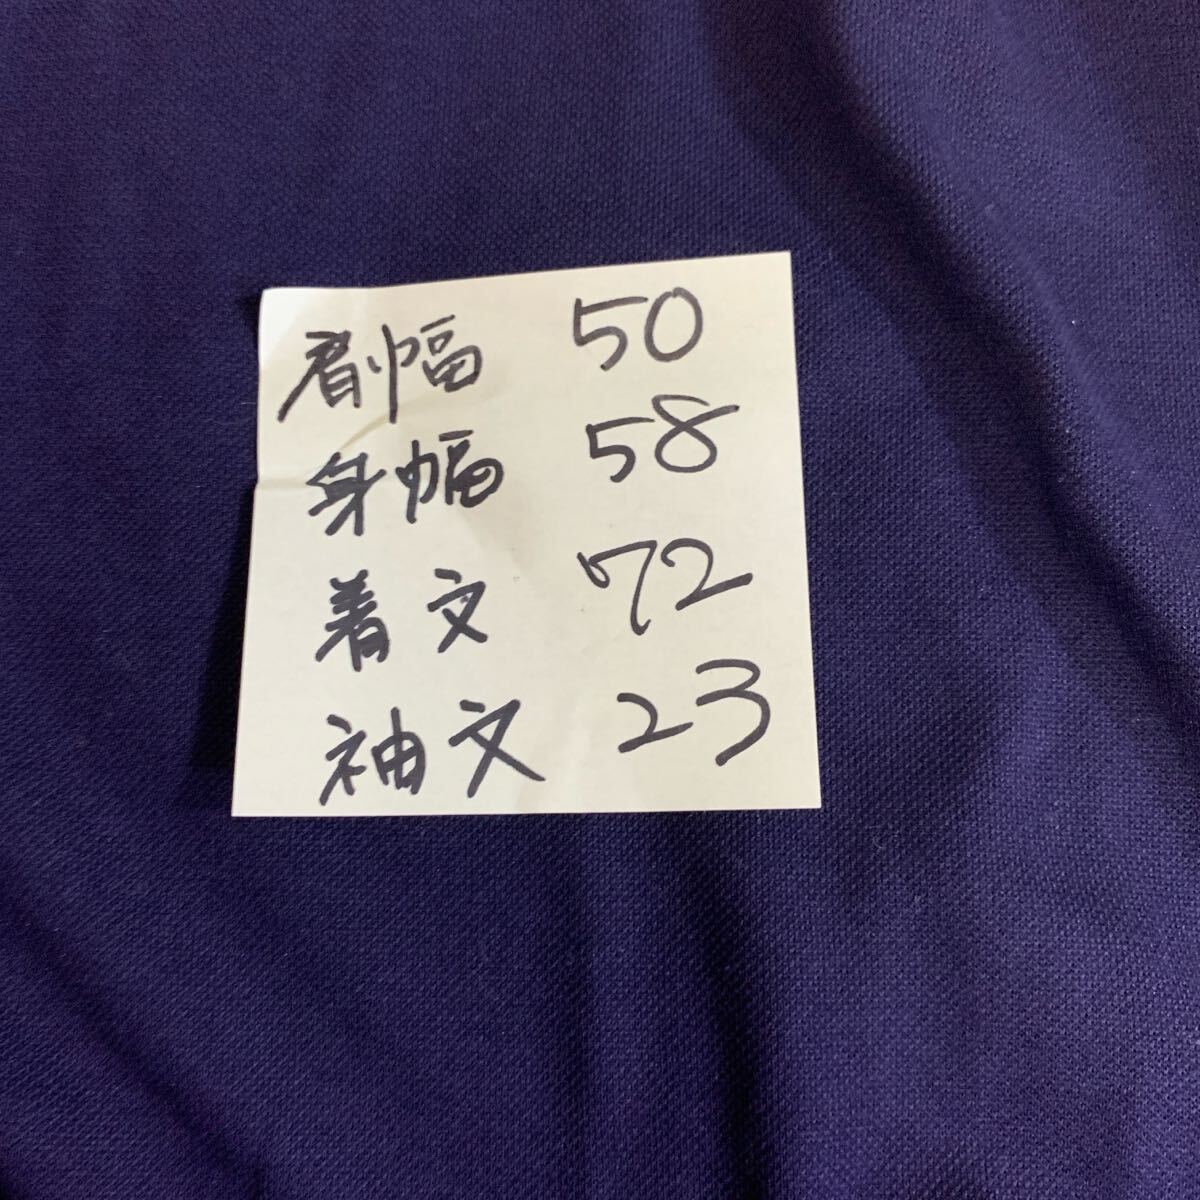 肩幅 50
身幅 58
着丈 72
袖丈 23